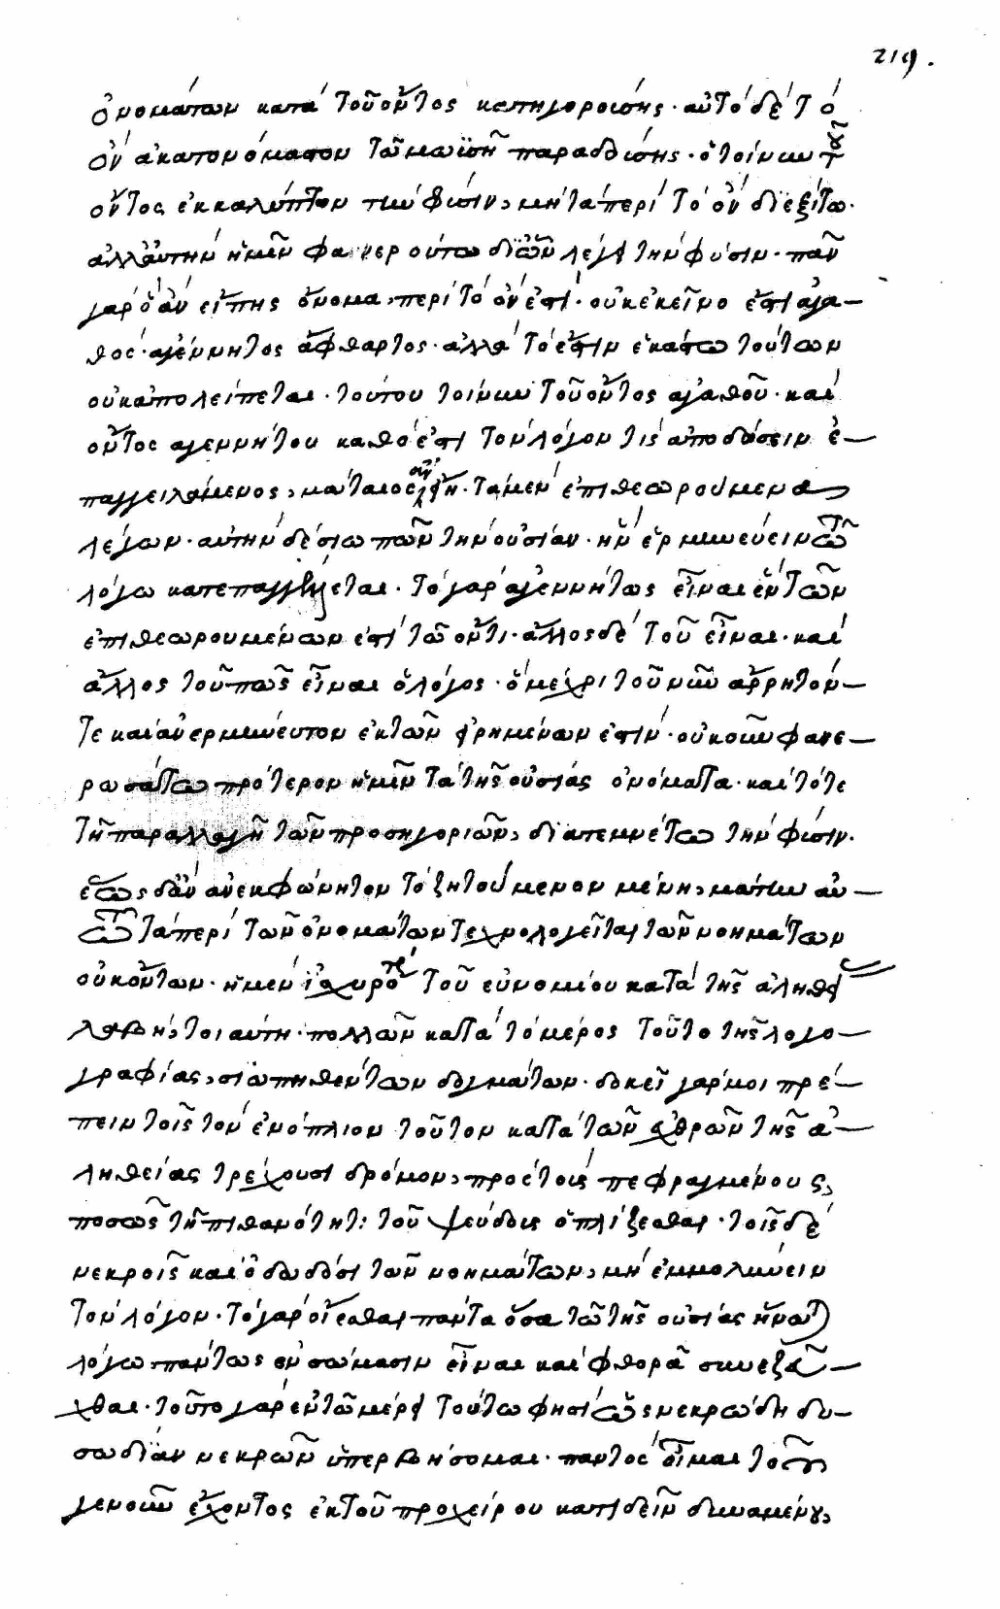 219.
ὀνομάτων κατὰ τοῦ ὄντος κατηγορούσης· αὐτὸ δὲ τὸ
ὂν ἀκατονόμαστον τῶ μωϋσῆ παραδούσης· ὁ τοίνυν τοῦ
ὄντος ἐκκαλύπτων τὴν φύσιν, μὴ τὰ περὶ τὸ ὂν διεξίτω·
ἀλλ' αὐτὴν ἡμῖν φανερούτω δι' ὧν λέγει τὴν φύσιν· πᾶν
γὰρ ὃ ἂν εἴπης ὄνομα, περὶ τὸ ὄν ἐστι· οὐκ ἐκεῖνο ἐστι ἀγα–
θὸς· ἀγέννητος ἄφθαρτος· ἀλλὰ τὸ ἔστιν ἑκάστω τούτων
οὐκ ἀπολείπεται· τούτου τοίνυν τοῦ ὄντος ἀγαθοῦ· καὶ
ὄντος ἀγεννήτου καθό ἐστι τὸν λόγον τὶς ἀποδώσειν ἐ–
παγγειλάμενος, μάταιος ἂν εἴη· τὰ μὲν ἐπιθεωρούμενα
λέγων· αὐτὴν δὲ σιωπῶν τὴν οὐσίαν· ἣν ἑρμηνεύειν τῶ
λόγω κατεπαγγέλλεται· τὸ γὰρ ἀγεννήτως εἶναι ἓν τῶν
ἐπιθεωρουμένων ἐστὶ τῶ ὄντι· ἄλλος δὲ τοῦ εἶναι· καὶ
ἄλλος τοῦ πῶς εἶναι ὁ λόγος· ὃ μέχρι τοῦ νῦν ἄρρητόν–
τε καὶ ἀνερμήνευτον ἐκ τῶν εἰρημένων ἐστίν· οὐκοῦν φανε–
ρωσάτω πρότερον ἡμῖν τὰ τῆς οὐσίας ὀνόματα· καὶ τότε
τῆ παραλλαγῆ τῶν προσηγοριῶν, διατεμνέτω τὴν φύσιν·
ἕως δ' ἂν ἀνεκφώνητον τὸ ζητούμενον μένη, μάτην αὐ–
τῶ τὰ περὶ τῶν ὀνομάτων τεχνολογεῖται τῶν νοημάτων
οὐκ ὄντων· ἡ μὲν ἰσχυρότε τοῦ εὐνομίου κατὰ τῆς ἀληθεί
λαβὴ, τοιαύτη· πολλῶν κατὰ τὸ μέρος τοῦτο τῆς λογο–
γραφίας, σιωπηθέντων δογμάτων· δοκεῖ γάρ μοι πρέ–
πειν τοῖς τὸν ἐνόπλιον τοῦτον κατὰ τῶν ἐχθρῶν τῆς ἀ–
ληθείας τρέχουσι δρόμον, πρὸς τοὺς πεφραγμένους,
ποσῶς τῆ πιθανότητι τοῦ ψεύδους ὁπλίζεσθαι· τοῖς δὲ
νεκροῖς καὶ ὀδωδόσι τῶν νοημάτων, μὴ ἐμμολύνειν
τὸν λόγον· τὸ γὰρ οἴεσθαι πάντα ὅσα τῶ τῆς οὐσίας ἥνωται
λόγω πάντως ἐν σώμασιν εἶναι καὶ φθορᾶ συνεζεῦ–
χθαι· τοῦτο γὰρ ἐν τῶ μέρει τούτω φησὶ ὡς νεκρώδη δυ–
σωδίαν νεκρῶν ὑπερβήσομαι· παντὸς οἶμαι τοῦ
γε νοῦν ἔχοντος ἐκ τοῦ προχείρου κατιδεῖν δυναμένου,